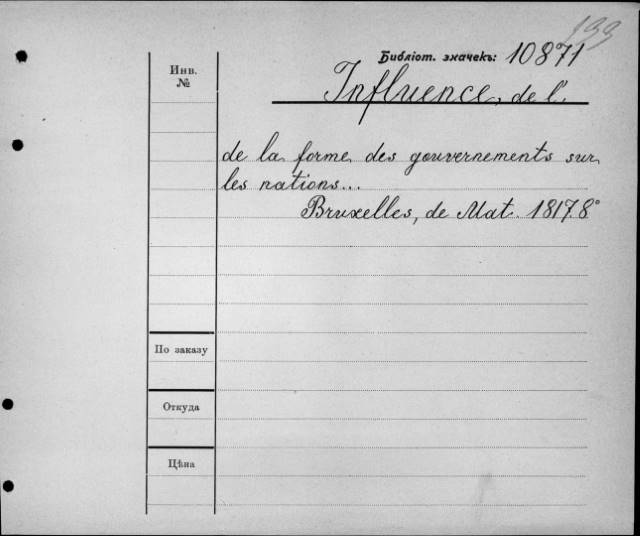 133
Библіот. значекъ: 10871
Инв.
№
Influence, de l'.
de la forme des gouvernements sur
les nations...
Bruxelles, de Mat. 1817. 8°
По заказу
Откуда
Цѣна